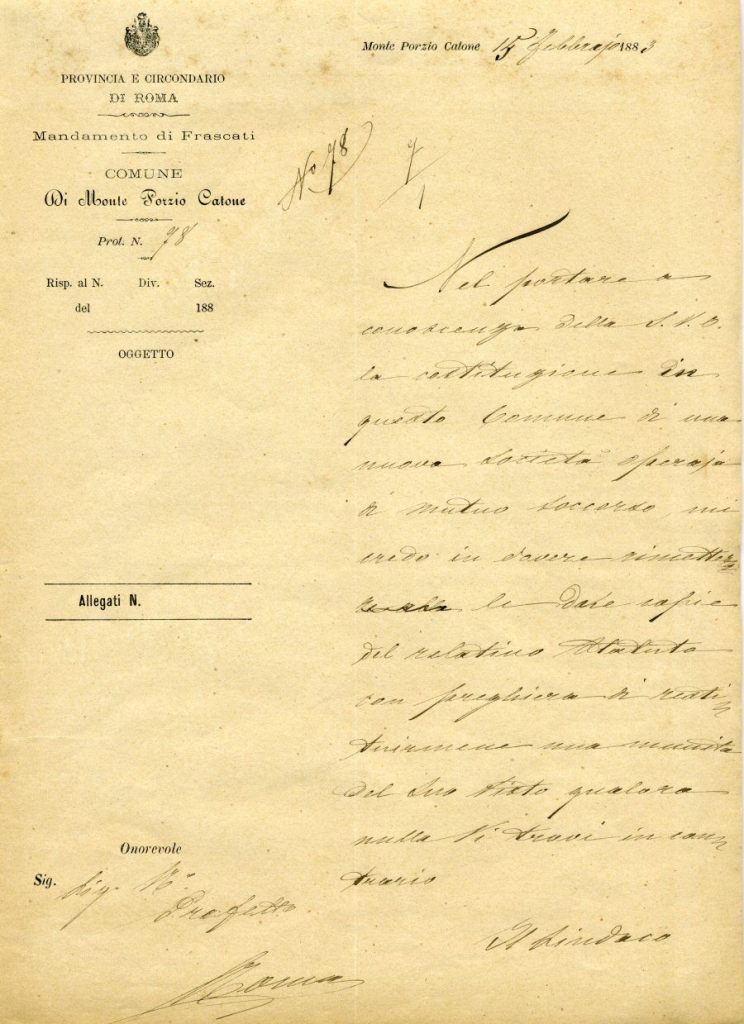 Monte Porzio Catone 15 Febbrajo 1883
PROVINCIA E CIRCONDARIO
DI ROMA
Mandamento di Frascati
COMUNE
Di Monte Porzio Catone
Prot. N. 78
Risp. al N. Div. Sez.
del 188
OGGETTO
No 78
Nel portare a
conoscenza della S. V. O.
la costituzione in
questo Comune di una
nuova società operaja
di mutuo soccorso, mi
credo in dovere rimetter
le due copie
del relativo Statuto
con preghiera di resti
tuirmene una munita
del Suo Visto qualora
nulla Vi trovi in con
trario
Il Sindaco
Allegati N.
Onorevole
Sig. Sig. Re
Prefetto
Roma